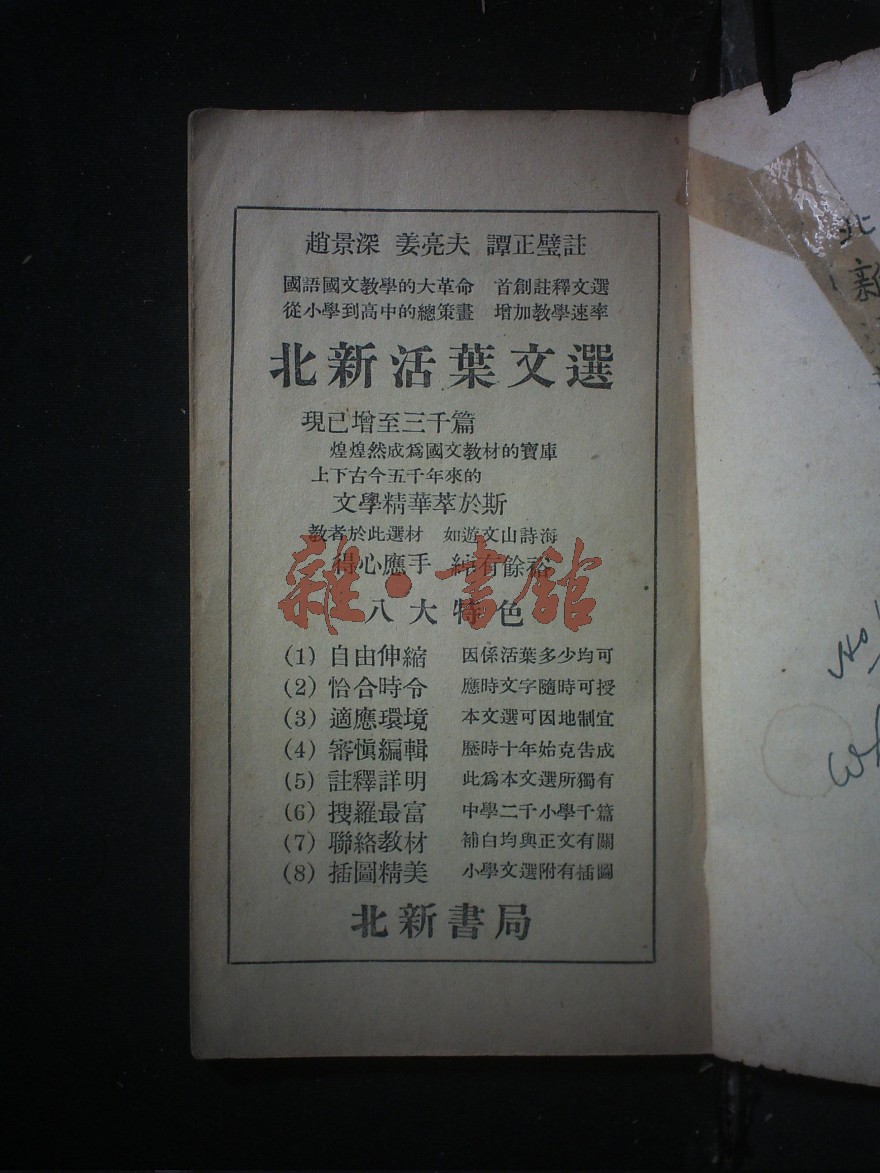 趙景深 姜亮夫 譚正璧註
國語國文教學的大革命 首創註釋文選
從小學到高中的總策畫 增加教學速率
北新活葉文選
現已增至三千篇
煌煌然成爲國文教材的寶庫
上下古今五千年來的
文學精華萃於斯
教者於此選材 如遊文山詩海
得心應手 綽有餘裕
雜·書館
八大特色
(1) 自由伸縮 因係活葉多少均可
(2) 恰合時令 應時文字隨時可授
(3) 適應環境 本文選可因地制宜
(4) 審愼編輯 歷時十年始克告成
(5) 註釋詳明 此爲本文選所獨有
(6) 搜羅最富 中學二千小學千篇
(7) 聯絡教材 補白均與正文有關
(8) 插圖精美 小學文選附有插圖
北新書局
北
新
No